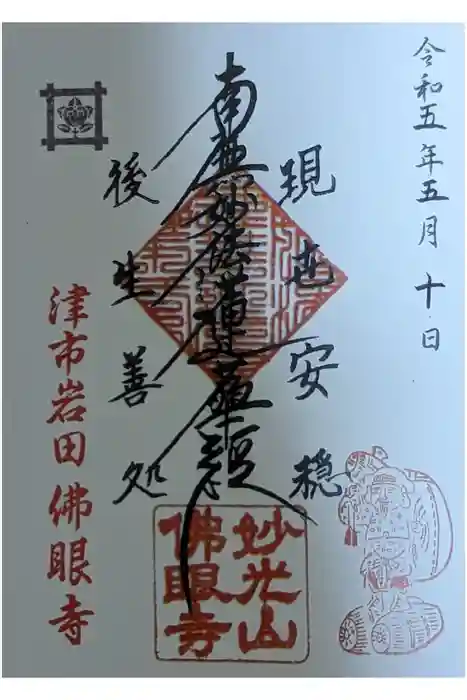 令和五年五月十日
現世安穏
南無妙法蓮華経
後生善処
津市岩田佛眼寺
妙光山
佛眼寺